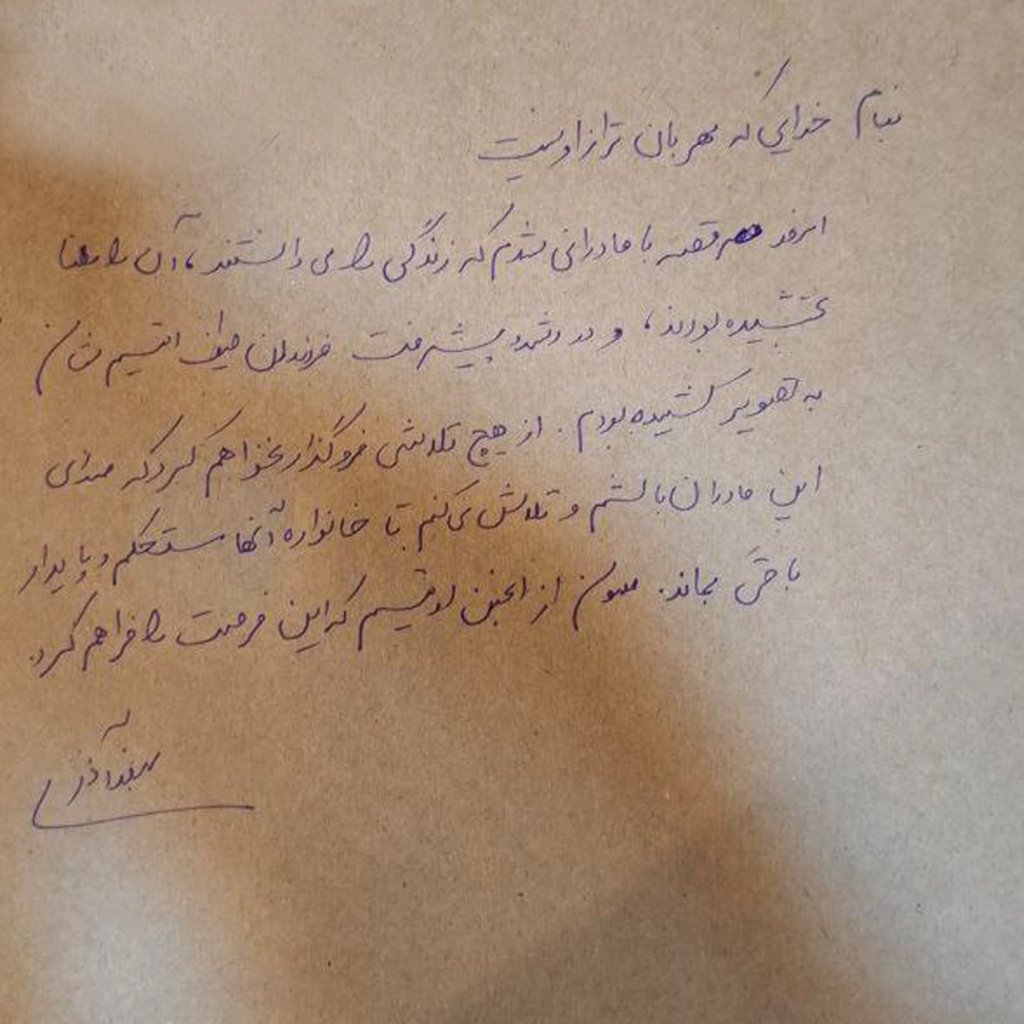 بنام خدایی که مهربان تر از او نیست
امروز هم قصه با مادرانی شدم که زندگی را می دانستند، آن را معنا
بخشیده بودند، و در رشد و پیشرفت فرزندان طیف اتیسم شان
به تصویر کشیده بودم. از هیچ تلاشی فروگذار نخواهم کرد که صدای
این مادران باشم و تلاش می کنم تا خانواده آنها مستحکم و پایدار
باقی بماند. ممنون از انجمن اوتیسم که این فرصت را فراهم کرد.